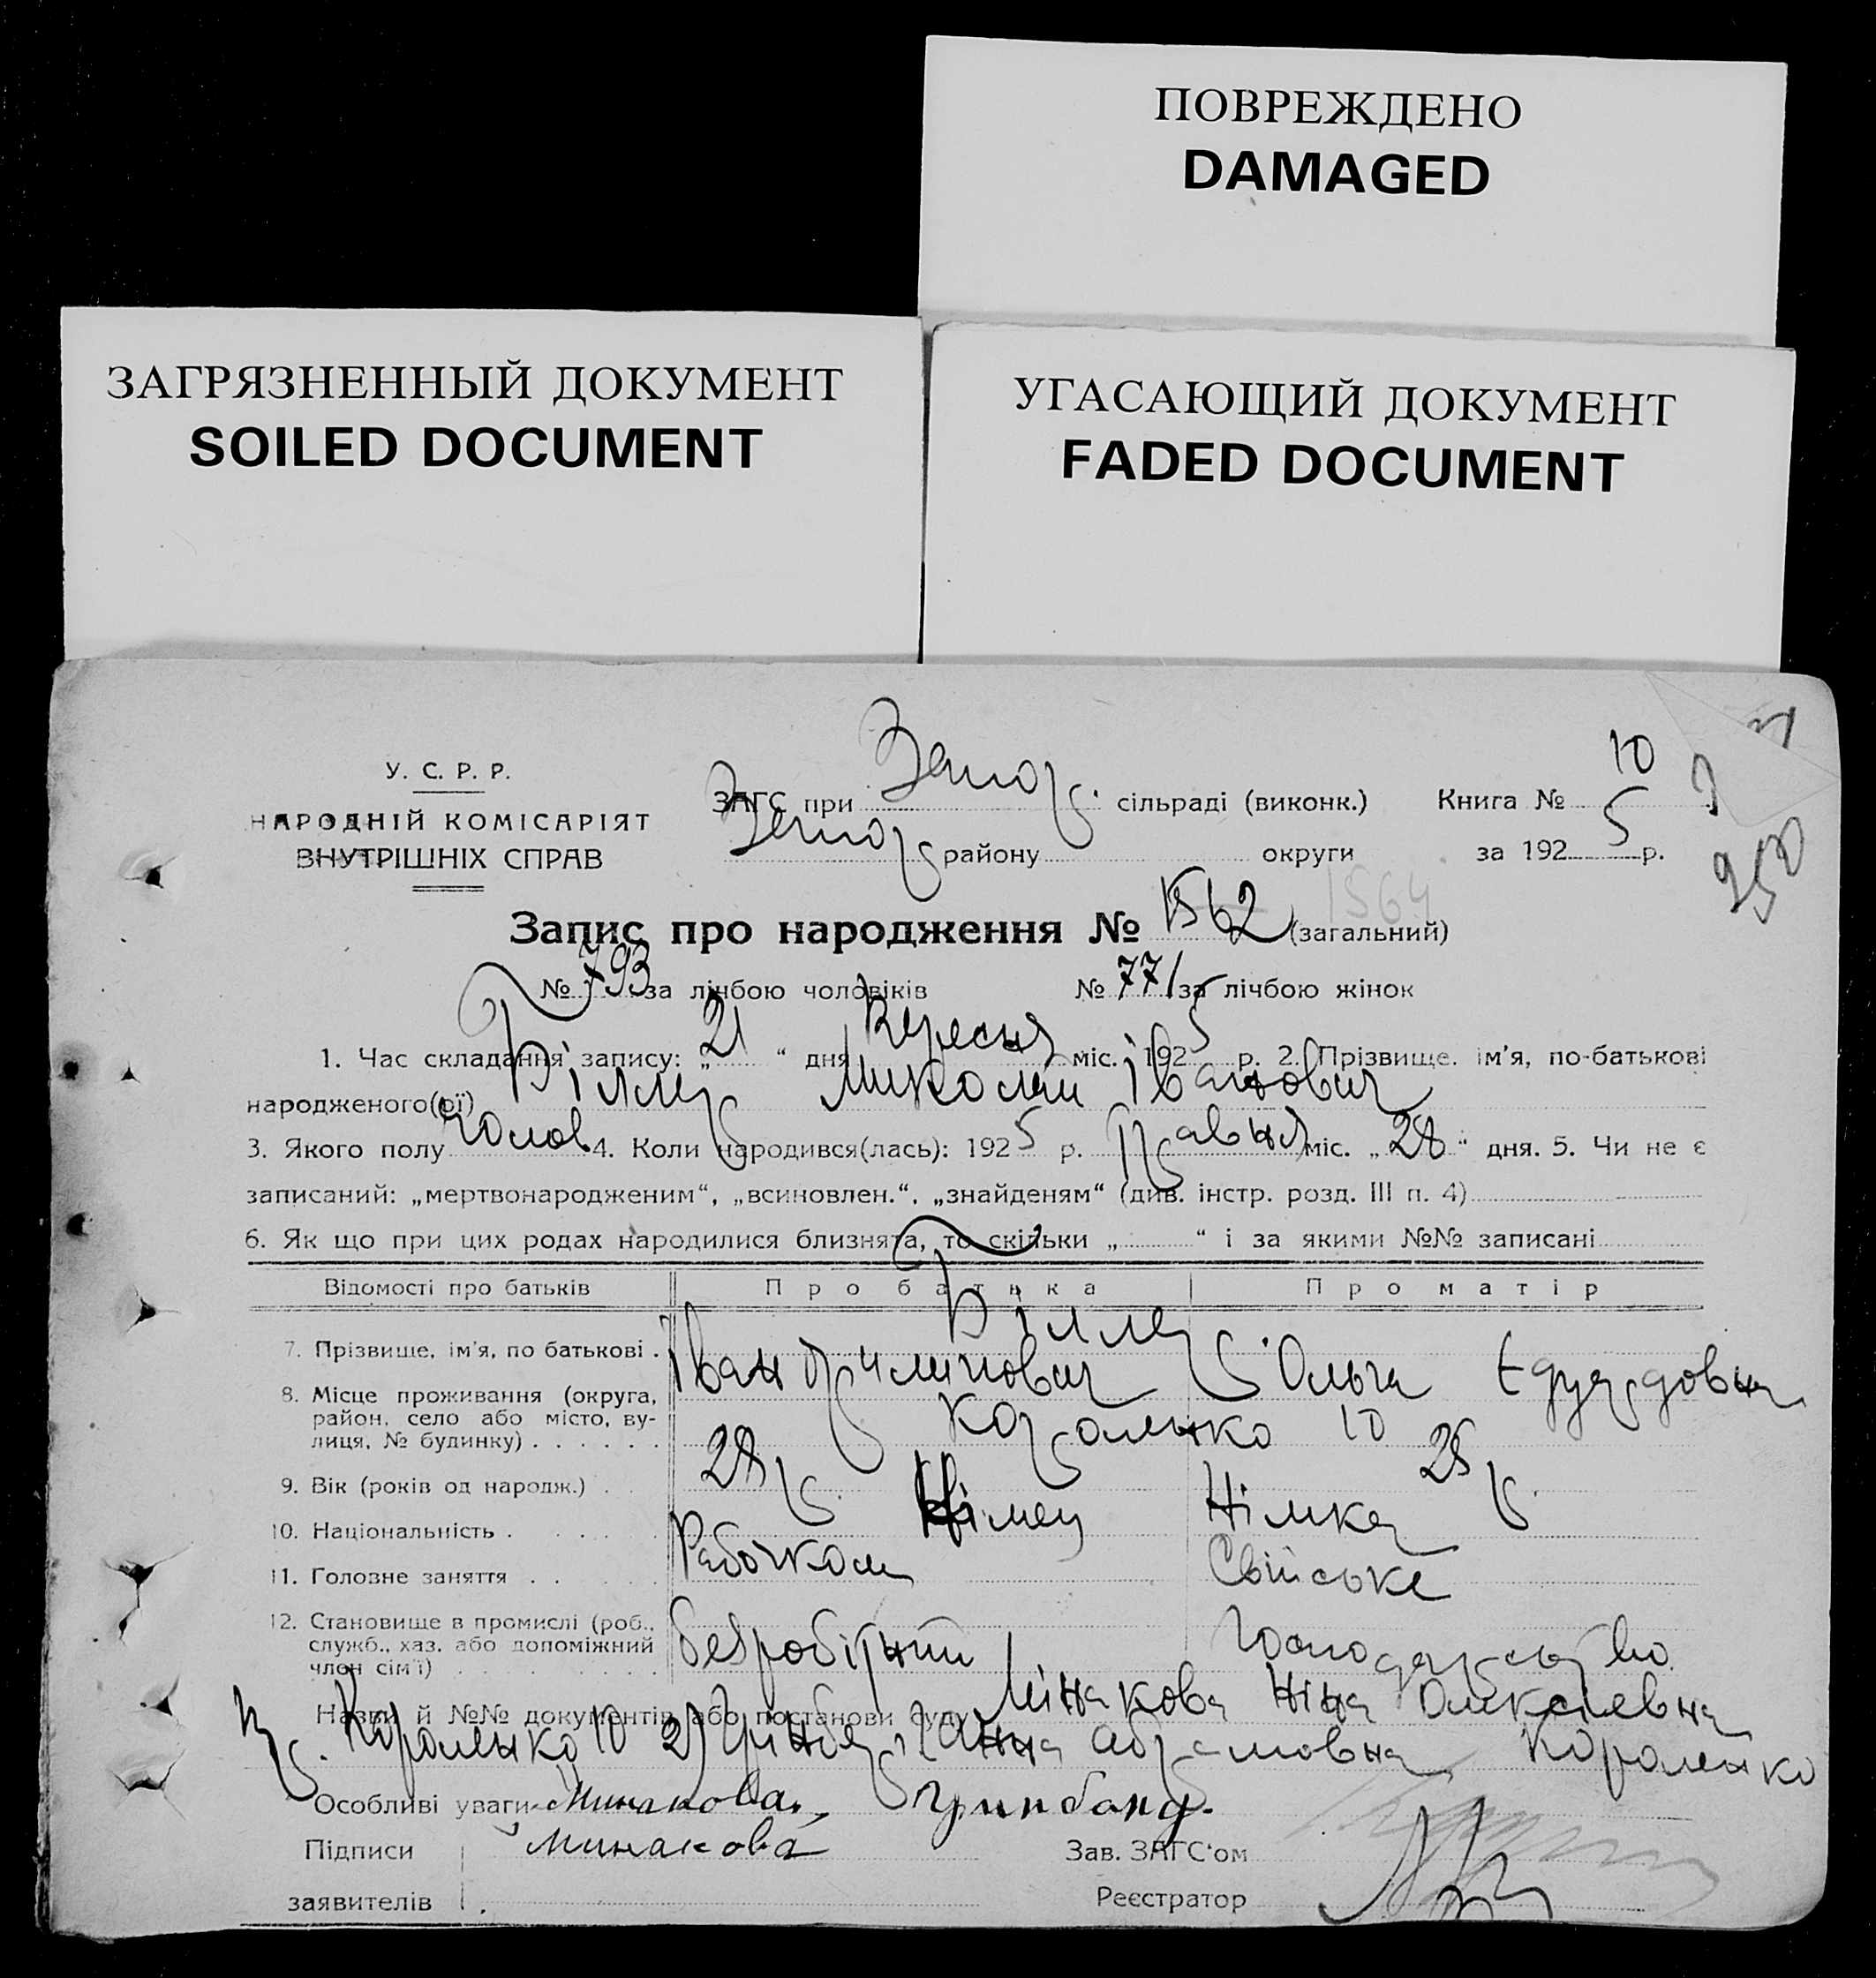 ПОВРЕЖДЕНО
DAMAGED
ЗАГРЯЗНЕННЫЙ ДОКУМЕНТ
SOILED DOCUMENT
УГАСАЮЩИЙ ДОКУМЕНТ
FADED DOCUMENT
У. С. Р. Р.
НАРОДНІЙ КОМІСАРІЯТ
ВНУТРІШНІХ СПРАВ
ЗАГС при Запор. сільраді (виконк.) Книга № 10
Запор району округи за 1925 р.
250
Запис про народження № 1562 (загальний) 1564
№ 793 за лічбою чоловіків № 771 за лічбою жінок
1. Час складання запису: „21“ дня Вересня міс. 1925 р. 2. Прізвище, ім'я, по-батькові
народженого(ої) Біллер Миколай Іванович
3. Якого полу Чолов 4. Коли народився(лась): 1925 р. Травня міс. „28“ дня. 5. Чи не є
записаний: „мертвонародженим“, „всиновлен.“, „знайденям“ (див. інстр. розд. III п. 4)
6. Як що при цих родах народилися близнята, то скільки „ “ і за якими №№ записані
Відомості про батьків Про батька Про матір
Біллер
7. Прізвище, ім'я, по батькові . Іван Ольга Едуардовна
8. Місце проживання (округа, район, село або місто, ву-
лиця, № будинку) . . . . . . Короленко 10
9. Вік (років од народж.) . . 28 р. 25 р.
10. Національність . Німец Німка
11. Головне заняття . . Рабочком Свійське
12. Становище в промислі (роб.,
служб., хаз. або допоміжний
член сім'ї) безробітний господарство
Назви й №№ документів або постанови суду Мінакова Ніна Олексіевна
Короленко 10 2) Анна Абрамовна Короленко
Особливі уваги Минакова, Гринбанд.
Підписи Минакова Зав. ЗАГС'ом
заявителів Реєстратор